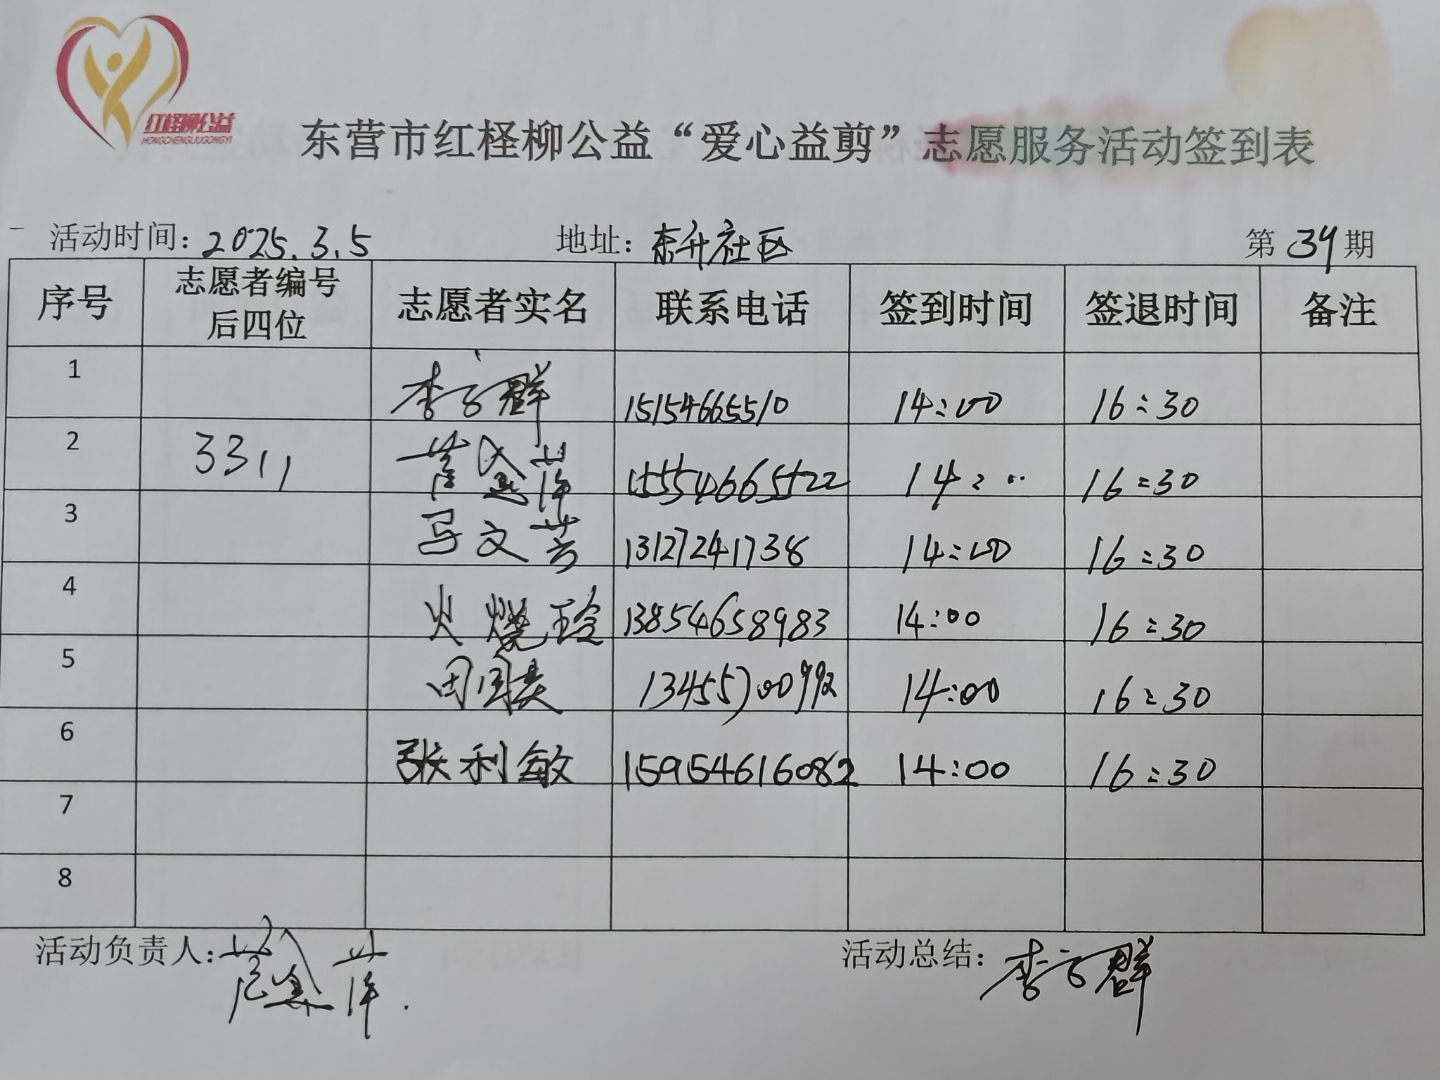 红柽柳公益
HONGCHENGLIUGONGYI
东营市红柽柳公益“爱心益剪”志愿服务活动签到表
活动时间：2025.3.5 地址：东升社区 第39期
序号 志愿者编号后四位 志愿者实名 联系电话 签到时间 签退时间 备注
1 李子群 15154665510 14:00 16:30
2 3311 15554665522 14:00 16:30
3 马文芳 13127241738 14:00 16:30
4 火烧玲 13854658983 14:00 16:30
5 田国英 13455700992 14:00 16:30
6 张利敏 15954616082 14:00 16:30
7
8
活动负责人： 活动总结：李子群